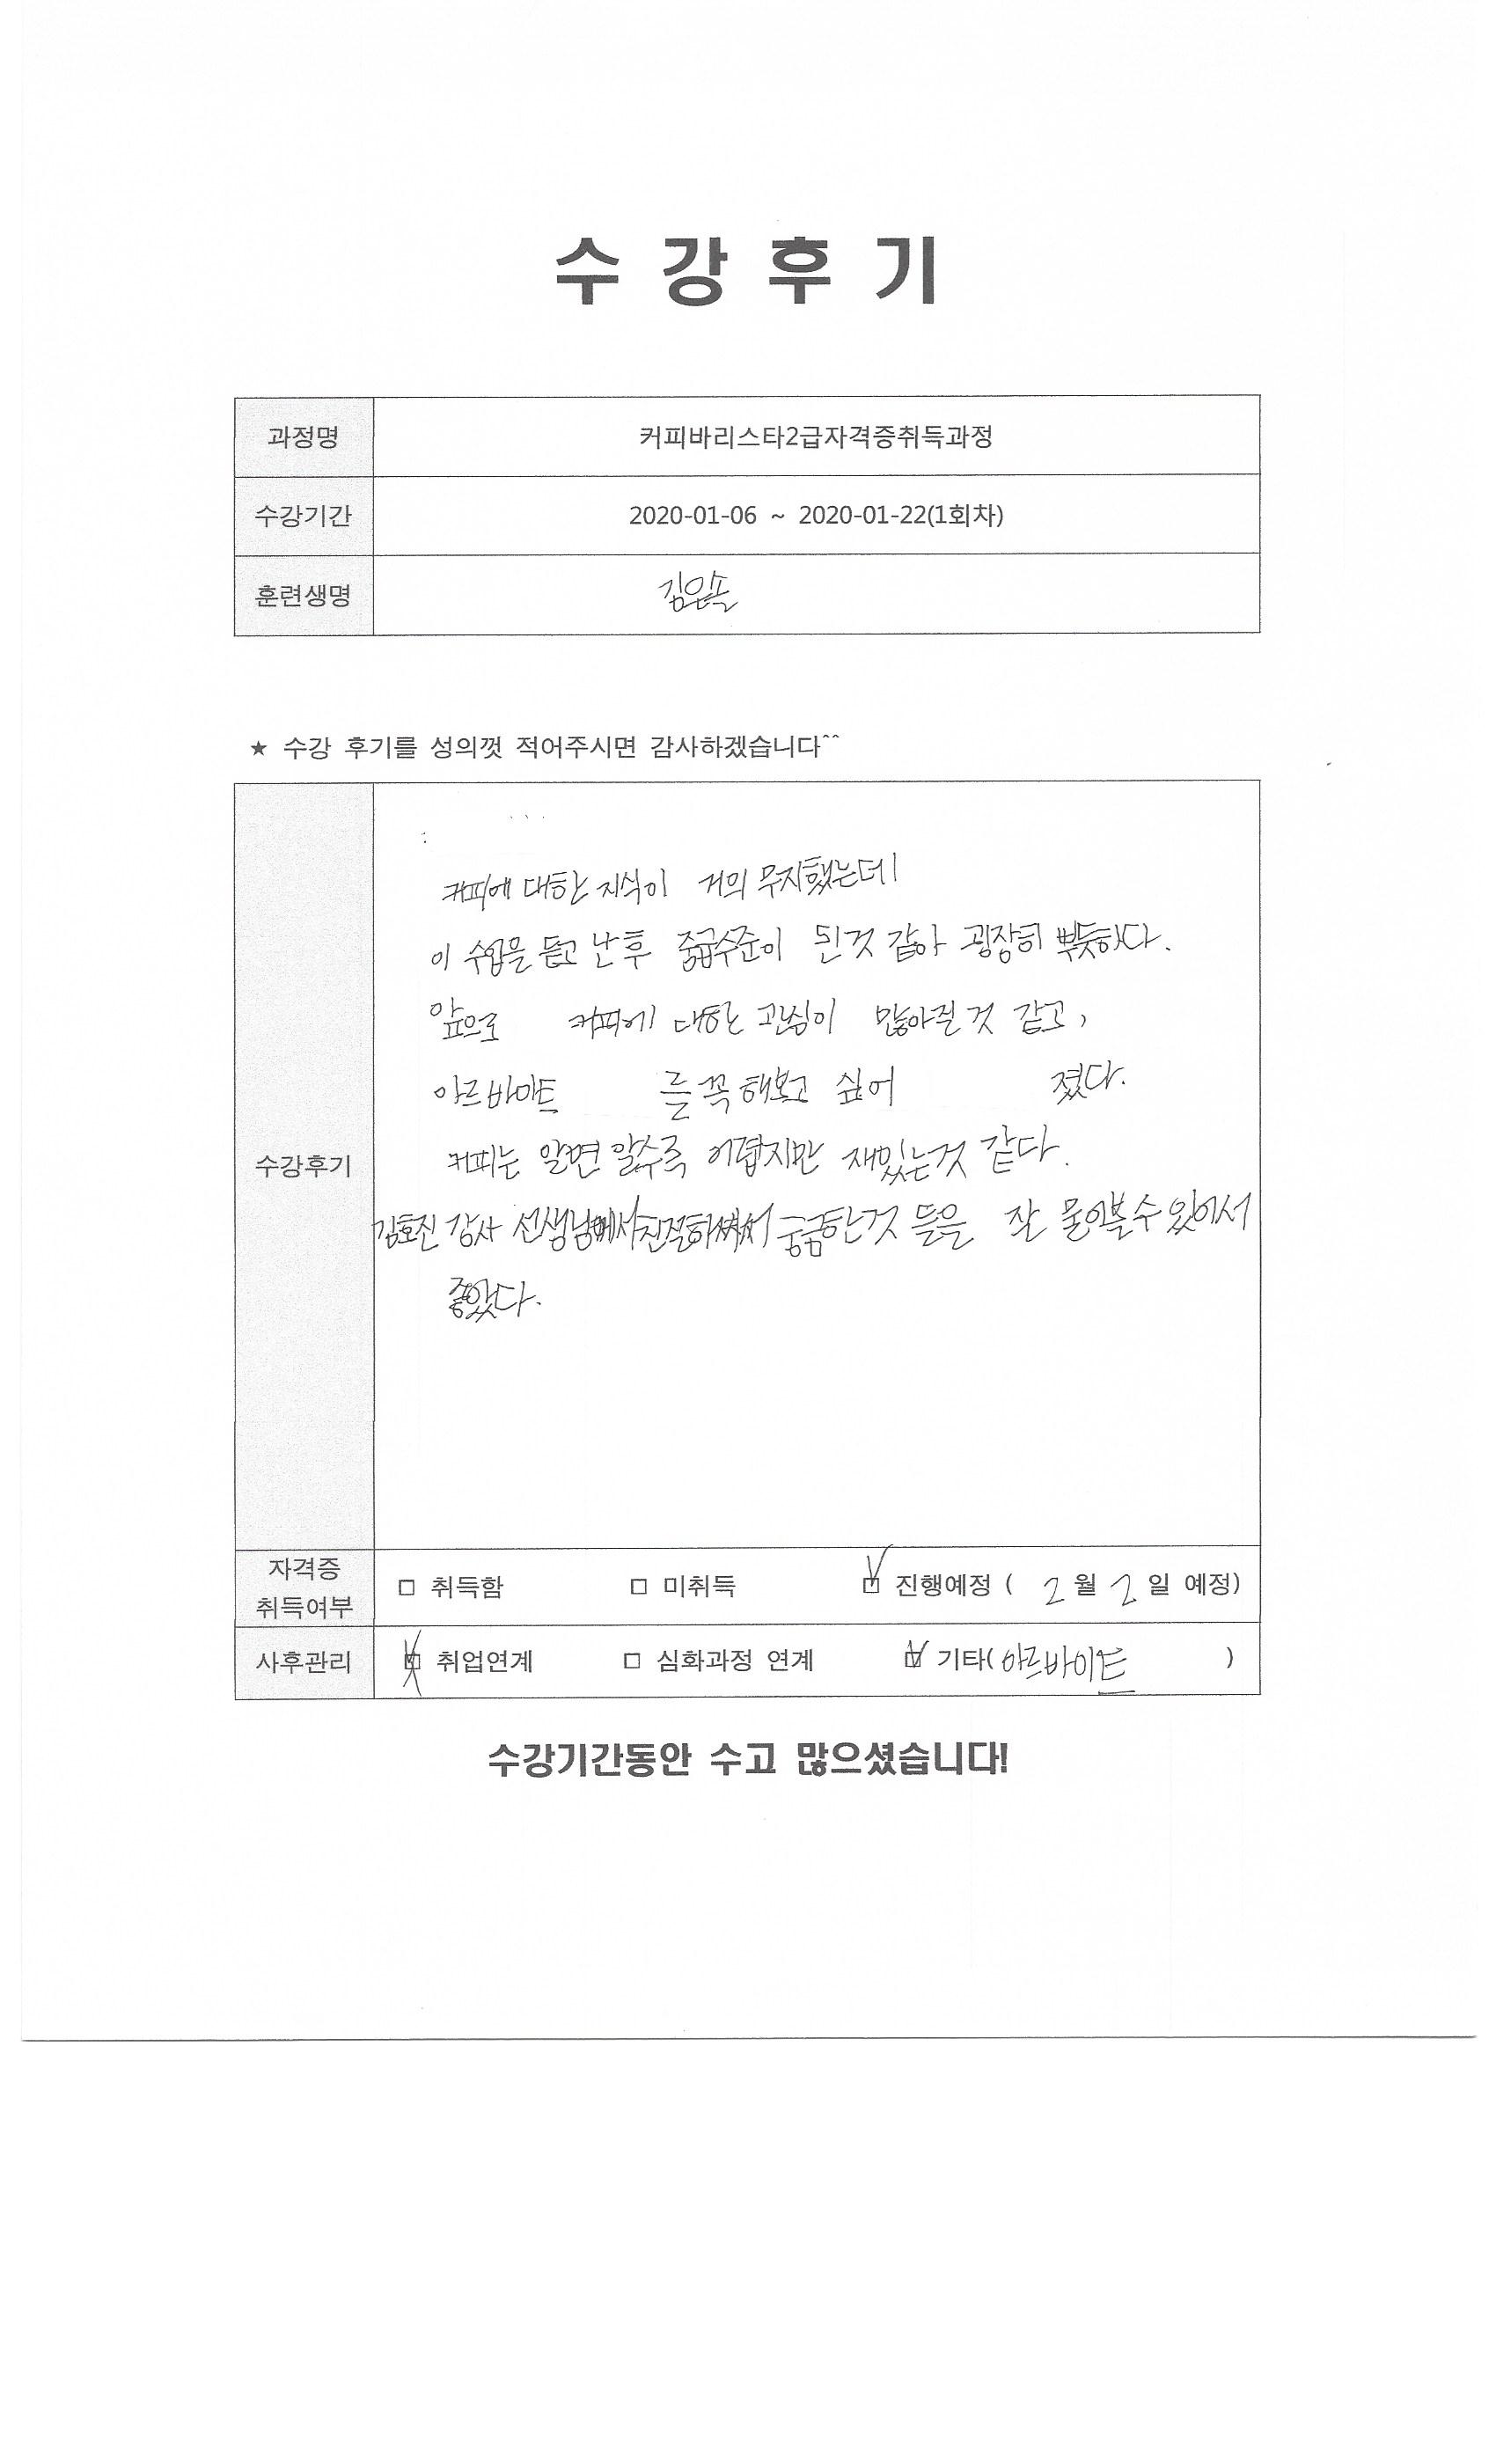 수 강 후 기
과정명 커피바리스타2급자격증취득과정
수강기간 2020-01-06 ~ 2020-01-22(1회차)
훈련생명
★ 수강 후기를 성의껏 적어주시면 감사하겠습니다^^
커피에 대한 지식이 거의 무지했는데
이 수업을 듣고 난 후 중급수준이 된것 같아 굉장히 뿌듯하다.
앞으로 커피에 대한 관심이 많아질 것 같고,
아르바이트 를 꼭 해보고 싶어 졌다.
수강후기 커피는 알면 알수록 어렵지만 재밌는것 같다.
김호진 강사 선생님께서 친절하셔서 궁금한것 들을 잘 물어볼수 있어서
좋았다.
자격증
취득여부 □ 취득함 □ 미취득 ☑ 진행예정 ( 2 월 2 일 예정)
사후관리 □ 취업연계 □ 심화과정 연계 ☑ 기타(아르바이트 )
수강기간동안 수고 많으셨습니다!